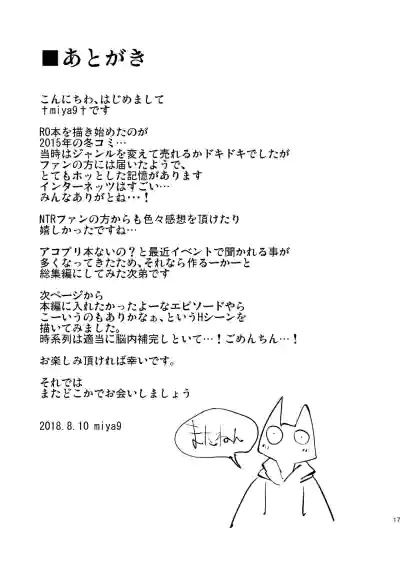 ■あとがき
こんにちわ、はじめまして
†miya9†です
RO本を描き始めたのが
2015年の冬コミ…
当時はジャンルを変えて売れるかドキドキでしたが
ファンの方には届いたようで、
とてもホッとした記憶があります
インターネッツはすごい…
みんなありがとね･･･！
NTRファンの方からも色々感想を頂けたり
嬉しかったですね…
アコプリ本ないの？と最近イベントで聞かれる事が
多くなってきたため、それなら作るーかーと
総集編にしてみた次第です
次ページから
本編に入れたかったよーなエピソードやら
こーいうのもありかなぁ、というHシーンを
描いてみました。
時系列は適当に脳内補完しといて…！ごめんちん…！
お楽しみ頂ければ幸いです。
それでは
またどこかでお会いしましょう
2018.8.10 miya9
またねん
17